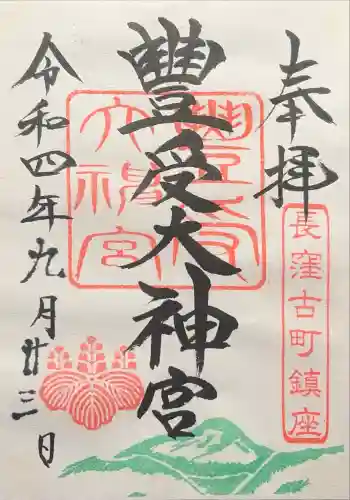 奉拝
長窪古町鎮座
豊受大神宮
豐受大神宮
令和四年九月廿三日